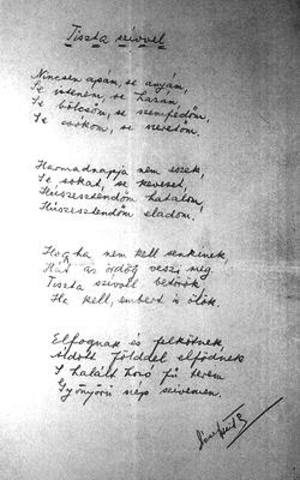 Tiszta szivvel
Nincsen apám, se anyám,
Se istenem, se hazám,
Se bölcsőm, se szemfedőm,
Se csókom, se szeretőm.
Harmadnapja nem eszek,
Se sokat, se keveset,
Húszesztendőm hatalom,
Húszesztendőm eladom.
Hogyha nem kell senkinek,
Hát az ördög veszi meg.
Tiszta szivvel betörök
Ha kell, embert is ölök.
Elfognak és felkötnek,
Áldott földdel elfödnek
S halált hozó fű terem
Gyönyörű szép szivemen.